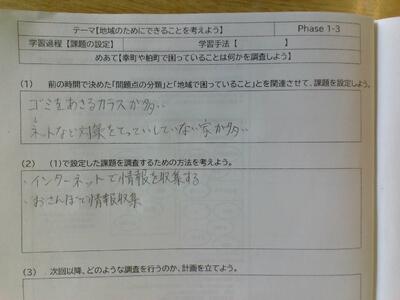 テーマ【地域のためにできることを考えよう】
Phase 1-3
学習過程【課題の設定】 学習手法【 】
めあて【幸町や柏町で困っていることは何かを調査しよう】
(1) 前の時間で決めた「問題点の分類」と「地域で困っていること」とを関連させて、課題を設定しよう。
ゴミをあさるカラスが多い
↓
ネットなど対策をてっていしていない家が多い
(2) (1)で設定した課題を調査するための方法を考えよう。
・インターネットで情報を収集する
・おさんぽで情報収集
(3) 次回以降、どのような調査を行うのか、計画を立てよう。